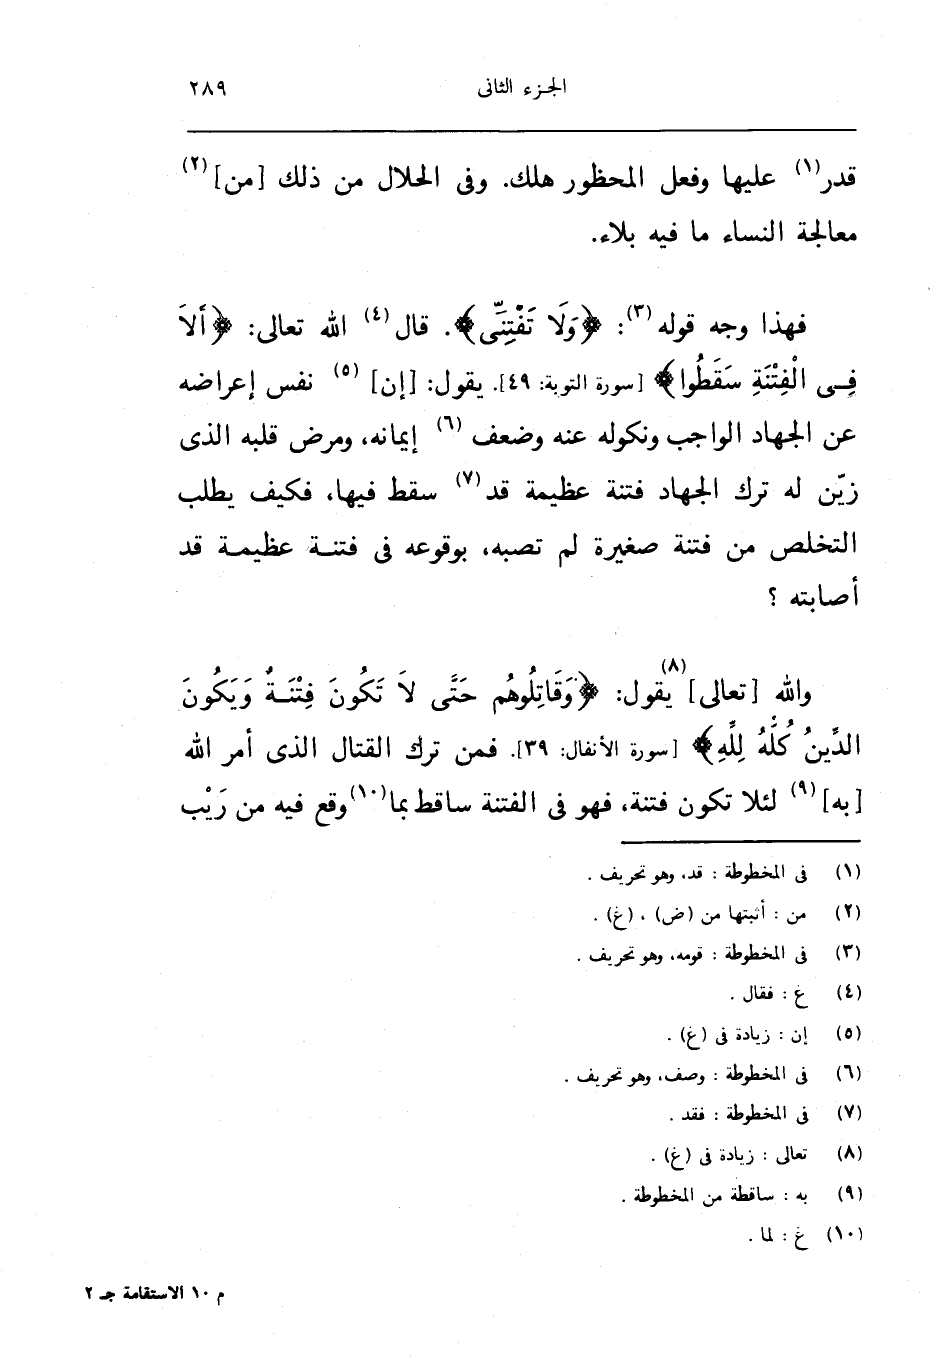 الجزء الثانى ٢٨٩
قدر(١) عليها وفعل المحظور هلك. وفى الحلال من ذلك [من](٢)
معالجة النساء ما فيه بلاء.
فهذا وجه قوله(٣): ﴿وَلَا تَفْتِنِّى﴾. قال(٤) الله تعالى: ﴿أَلاَ
فِى الْفِتْنَةِ سَقَطُوا﴾ [سورة التوبة: ٤٩]. يقول: [إن](٥) نفس إعراضه
عن الجهاد الواجب ونكوله عنه وضعف(٦) إيمانه، ومرض قلبه الذى
زيّن له ترك الجهاد فتنة عظيمة قد(٧) سقط فيها، فكيف يطلب
التخلص من فتنة صغيرة لم تصبه، بوقوعه فى فتنة عظيمة قد
أصابته ؟
والله [تعالى](٨) يقول: ﴿وَقَاتِلُوهُم حَتَّى لاَ تَكُونَ فِتْنَةٌ وَيَكُونَ
الدِّينُ كُلُّهُ لِلَّهِ﴾ [سورة الأنفال: ٣٩]. فمن ترك القتال الذى أمر الله
[به](٩) لئلا تكون فتنة، فهو فى الفتنة ساقط بما(١٠) وقع فيه من رَيْب
(١) فى المخطوطة : قد، وهو تحريف .
(٢) من : أثبتها من (ض) ، (غ) .
(٣) فى المخطوطة : قومه، وهو تحريف .
(٤) غ : فقال .
(٥) إن : زيادة فى (غ) .
(٦) فى المخطوطة : وصف، وهو تحريف .
(٧) فى المخطوطة : فقد .
(٨) تعالى : زيادة فى (غ) .
(٩) به : ساقطة من المخطوطة .
(١٠) غ : لما .
م ١٠ الاستقامة جـ ٢